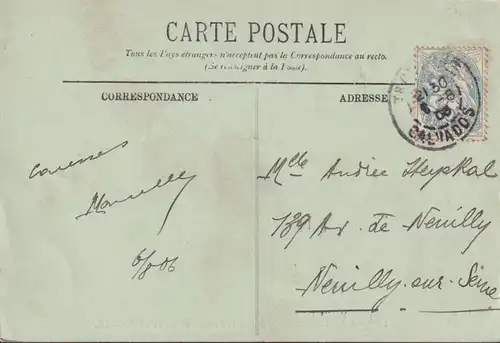 CARTE POSTALE
Tous les Pays étrangers n'acceptent pas la Correspondance au recto.
(Se renseigner à la Poste).
CORRESPONDANCE
ADRESSE
CALVADOS
Caresses
Marcelle
6/8 06
Mlle Andrée Heyskal
139 Av. de Neuilly
Neuilly-sur-Seine